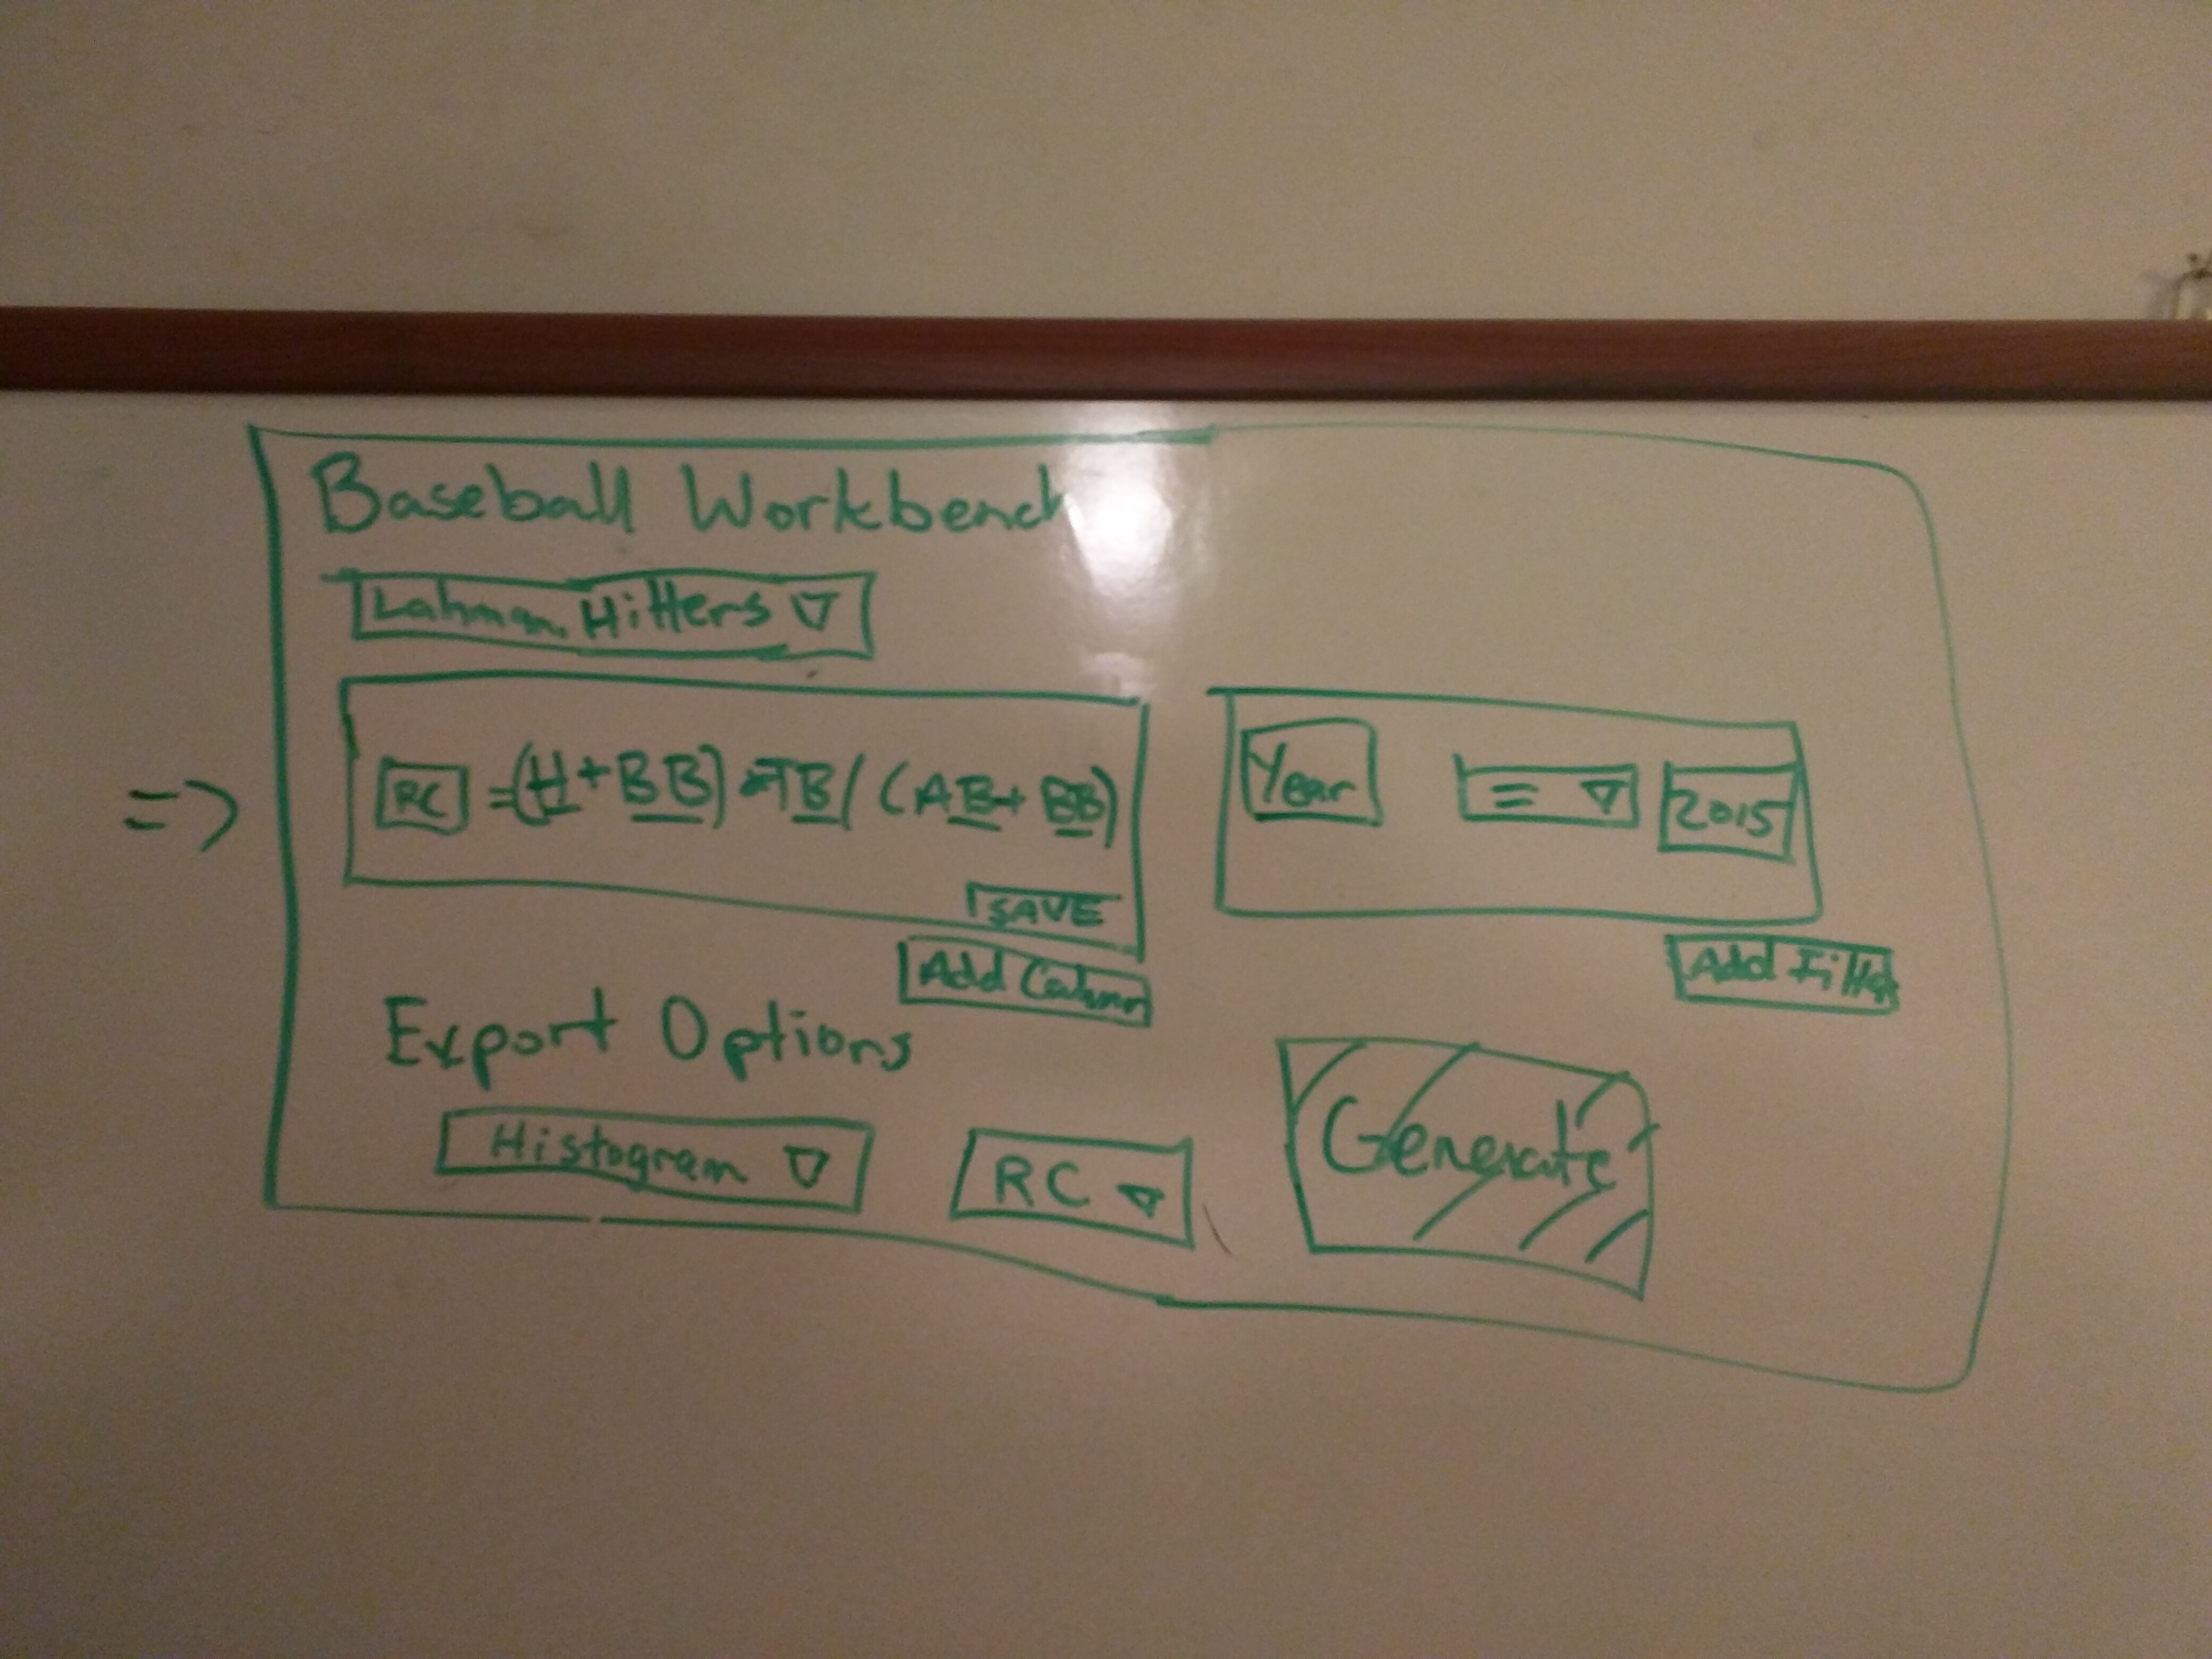 Baseball Workbench
Lahman Hitters ▽
RC =(H+BB)*TB/(AB+BB)
SAVE
Add Column
Year = ▽ 2015
Add Filter
=>
Export Options
Histogram ▽ RC ▽
Generate